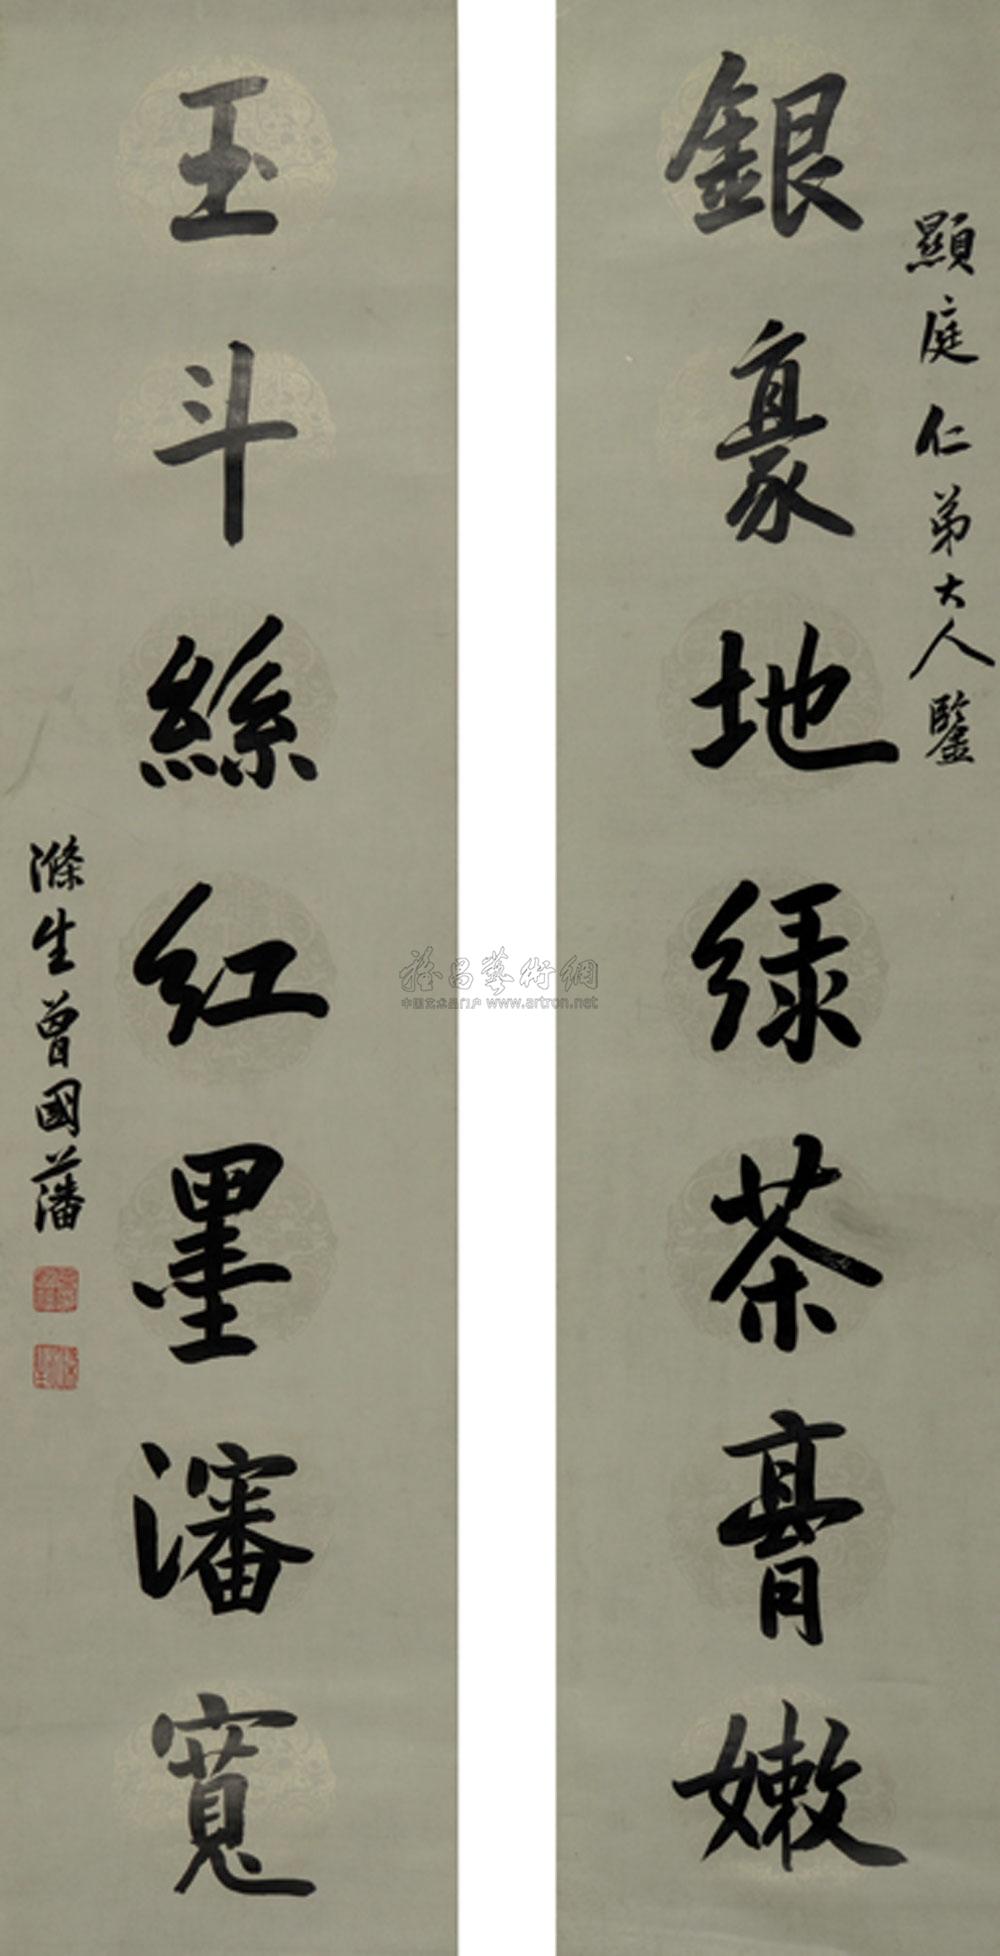 顯庭仁弟大人鑒
銀豪地绿茶膏嫩
玉斗絲紅墨瀋寬
滌生曾國藩
雅昌藝術網
中国艺术品门户 www.artron.net